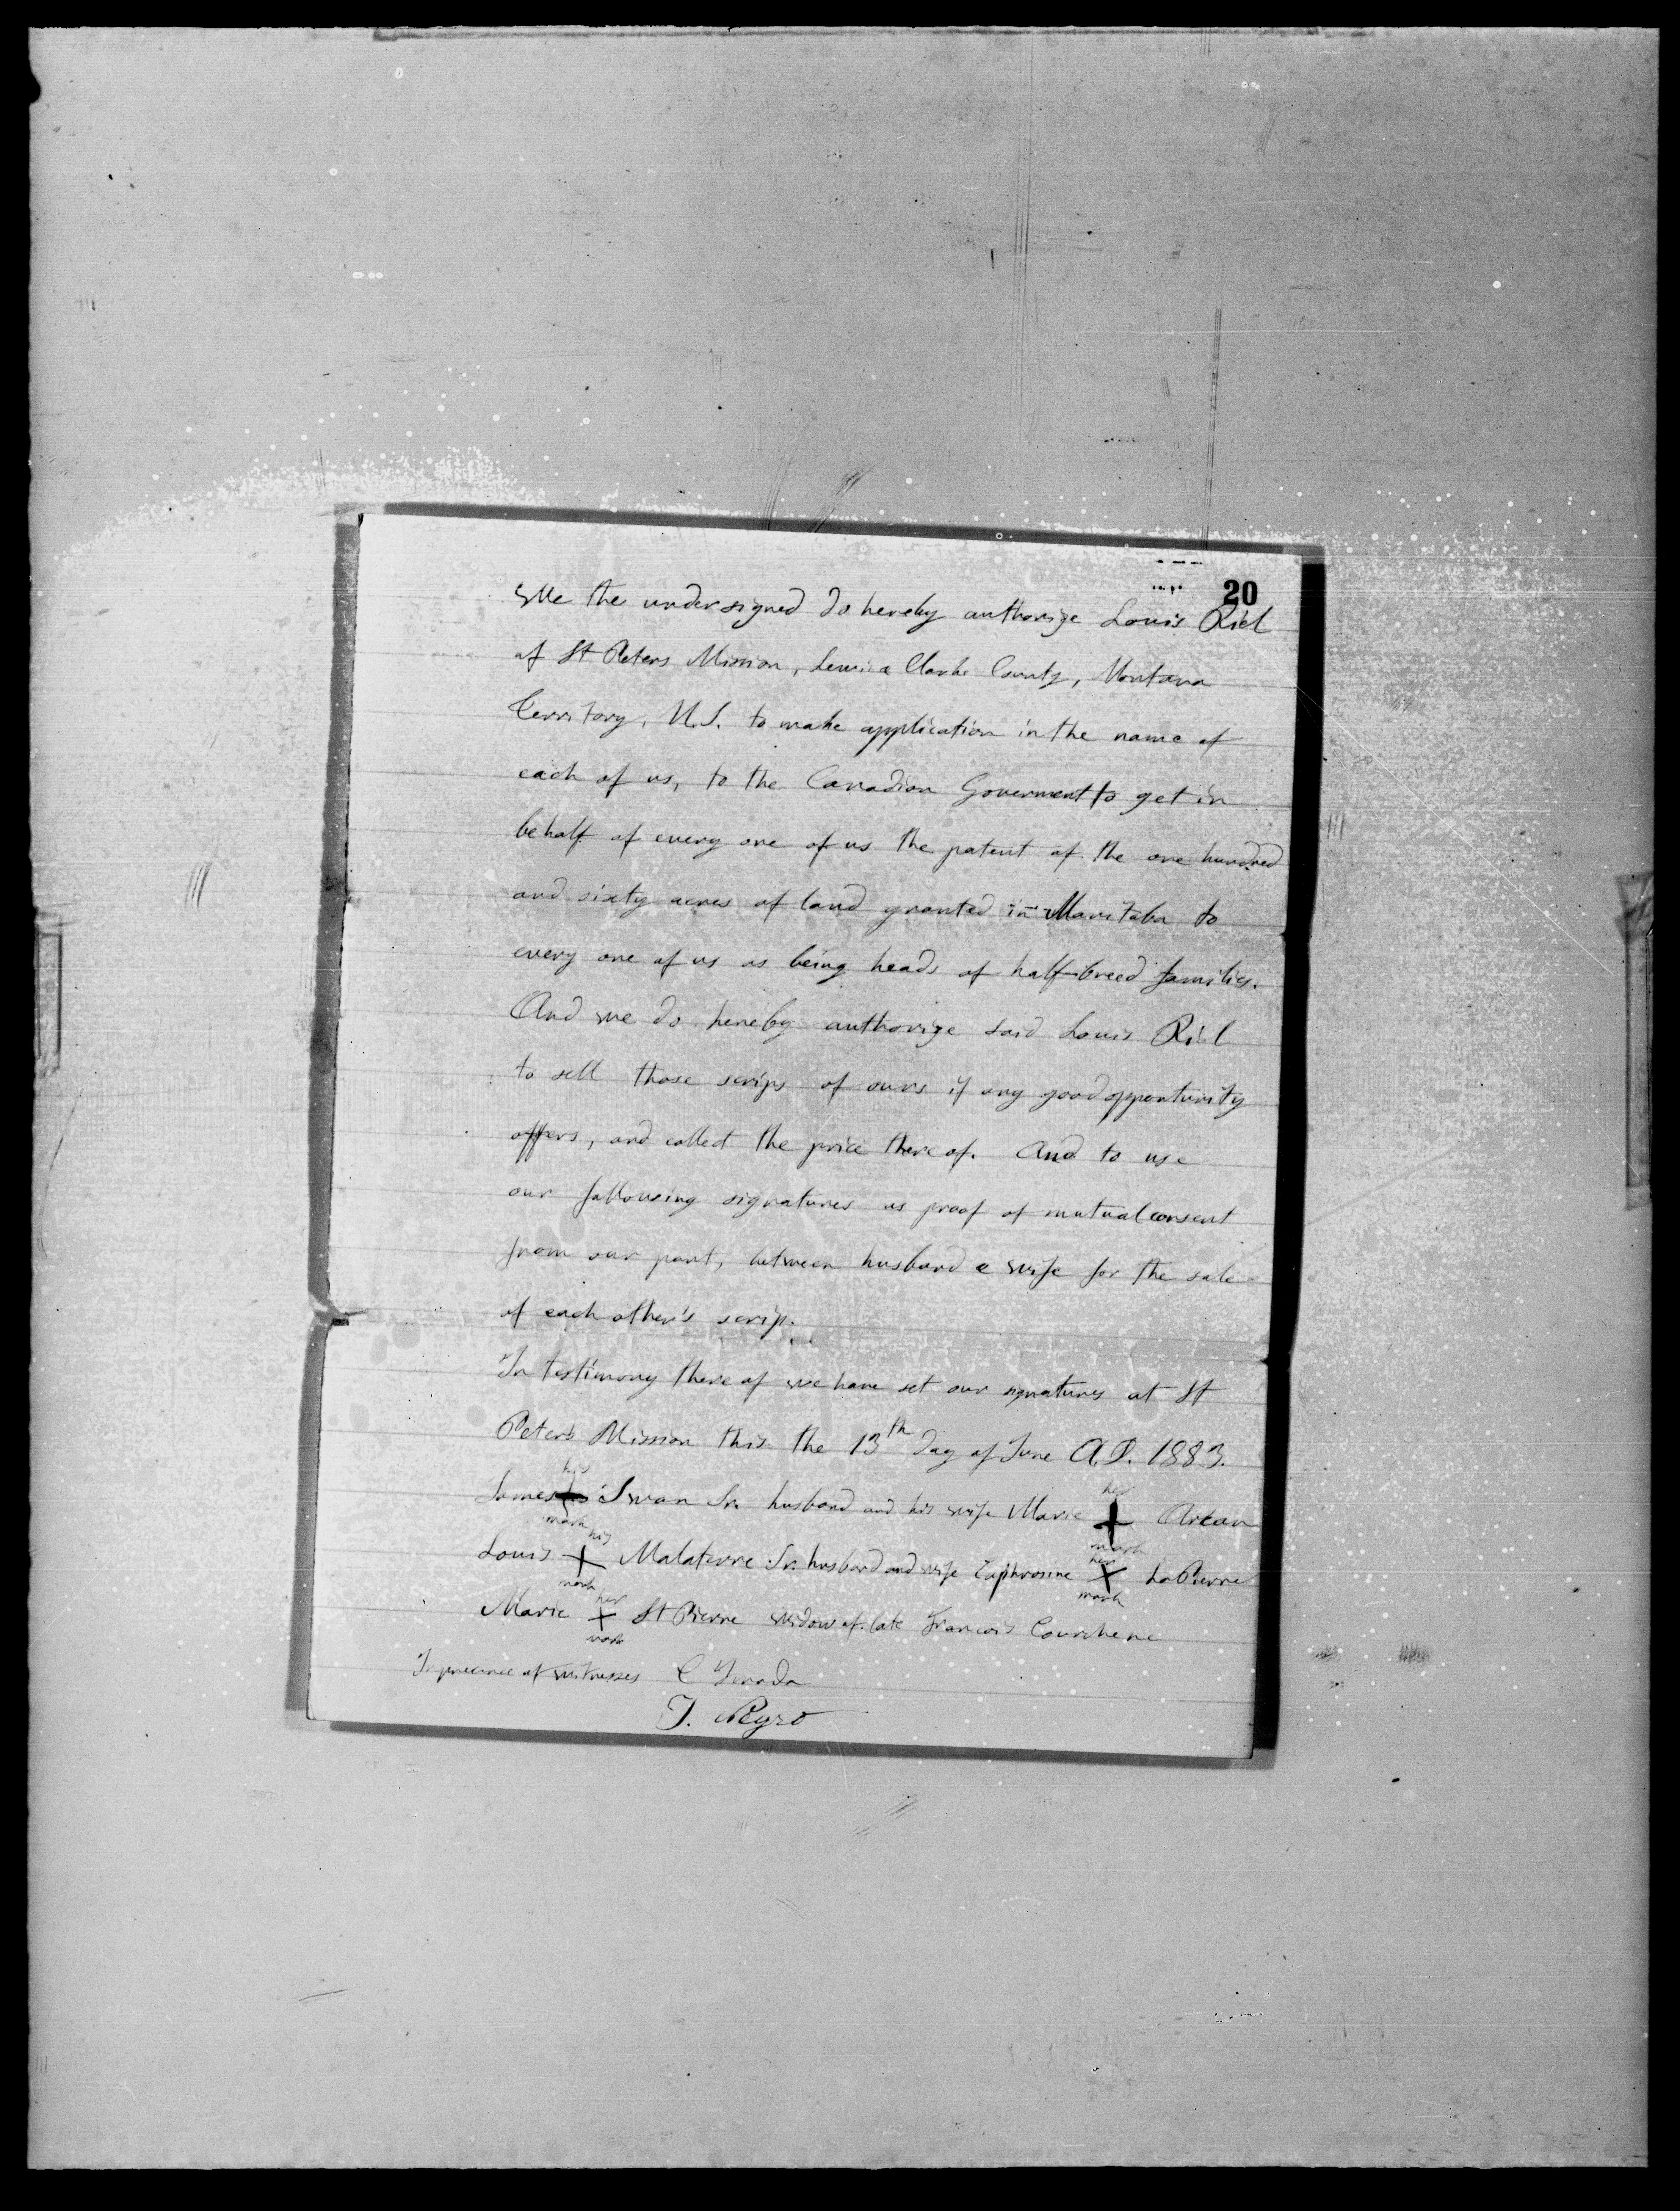 20
We the undersigned do hereby authorize Louis Riel
of St Peters Mission, Lewis & Clarke County, Montana
Territory, U.S. to make application in the name of
each of us, to the Canadian Goverment to get in
behalf of every one of us the patent of the one hundred
and sixty acres of land granted in Manitoba to
every one of us as being heads of half-breed families.
And we do hereby authorize said Louis Riel
to sell those scrips of ours if any good opportunity
offers, and collect the price there of. And to use
our following signatures as proof of mutual consent
from our part, between husband & wife for the sale
of each other's scrip.
In testimony there of we have set our signatures at St
Peters Mission this the 13th day of June A.D. 1883.
his her
James + Swan Sr. husband and his wife Marie + Arcan
mark mark
his her
Louis + Malaterre Sr. husband and wife Euphrosine + LaPierre
mark mark
her
Marie + St Pierre widow of late Francois Courchene
mark
In presence of witnesses C
J.